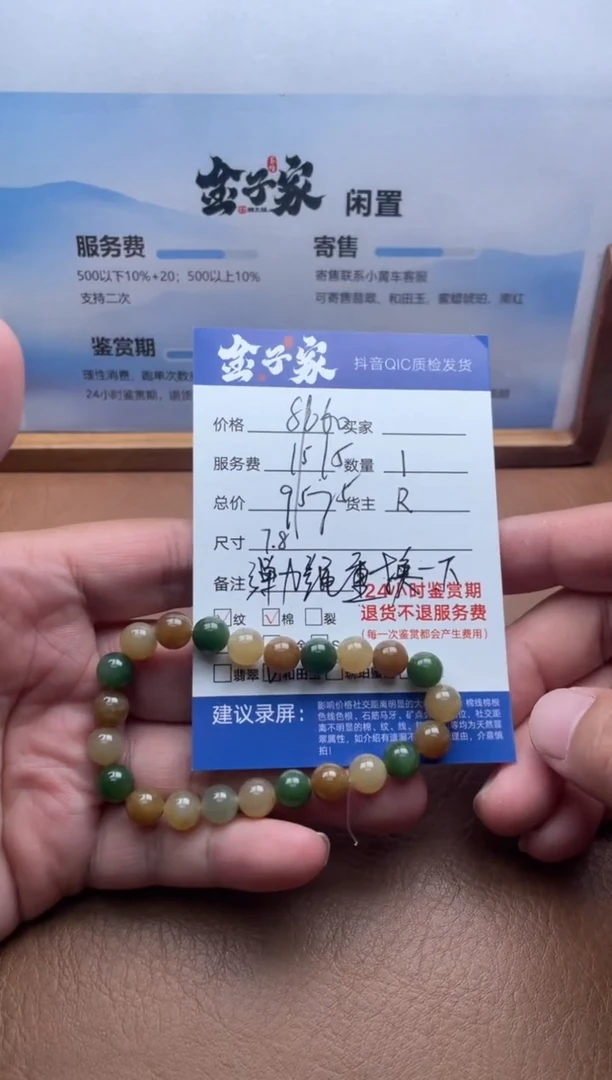 金子家 闲置
服务费 寄售
500以下10%+20；500以上10% 寄售联系小黄车客服
支持二次 可寄售翡翠、和田玉、蜜蜡琥珀、南红
鉴赏期
理性消费，跑单次数
24小时鉴赏期，退货
金子家 抖音QIC质检发货
价格 买家
服务费 数量 1
总价 货主 R
尺寸 7.8
备注 弹力绳重换一下
24小时鉴赏期
退货不退服务费
(每一次鉴赏都会产生费用)
纹 棉 裂
翡翠 和田玉
建议录屏：
影响价格社交距离明显的大
色线色根、石筋马牙、矿点
离不明显的棉、纹、线
翠属性，如介绍有遗漏不
拍！